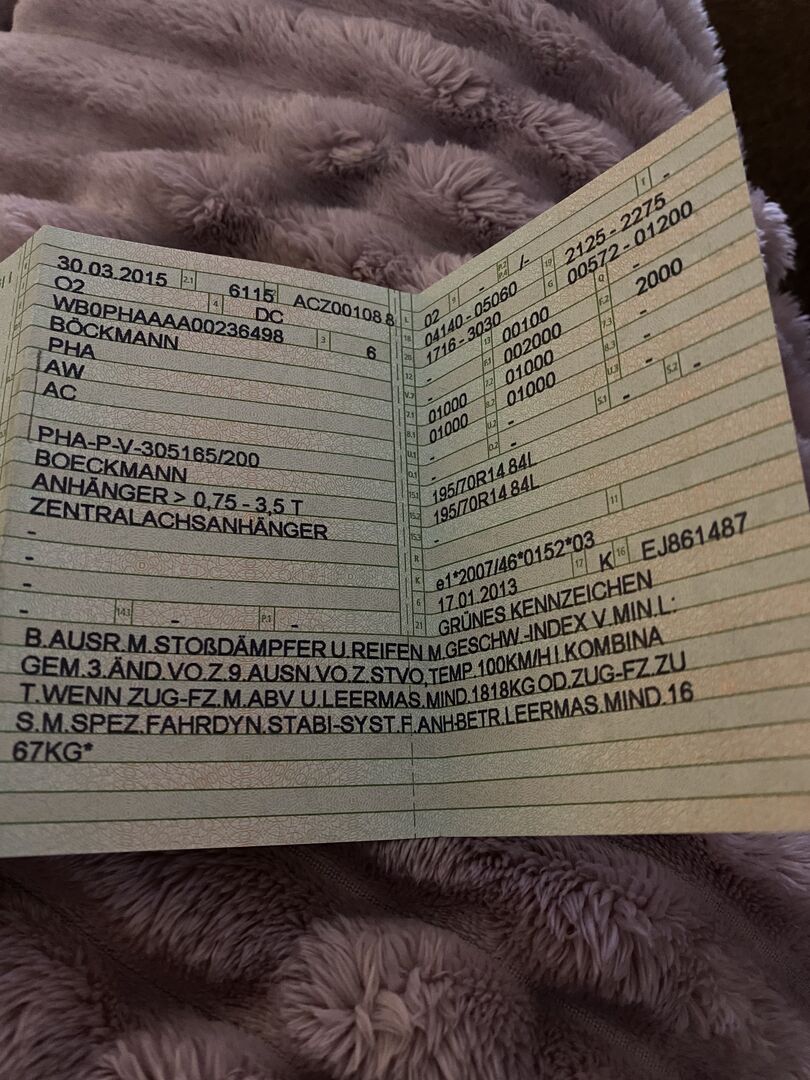 30.03.2015 2.1 6115 ACZ00108 8
O2 4 DC
WB0PHAAAA00236498 3 6
BÖCKMANN
PHA
AW
AC
PHA-P-V-305165/200
BOECKMANN
ANHÄNGER > 0,75 - 3,5 T
ZENTRALACHSANHÄNGER
-
-
-
- 14.3 - P.1 -
L 02 9 - P.2 P.4 /- T -
18 04140 - 05060 19 2125 - 2275
20 1716 - 3030 G 00572 - 01200
12 - 13 00100 Q -
V.7 - F.1 002000 F.2 2000
7.1 01000 7.2 01000 7.3 -
8.1 01000 8.2 01000 8.3 -
U.1 - U.2 - U.3 -
O.1 - O.2 - S.1 - S.2 -
15.1 195/70R14 84L
15.2 195/70R14 84L
15.3 -
R 11
K e1*2007/46*0152*03
6 17.01.2013 17 K 16 EJ861487
21 GRÜNES KENNZEICHEN
B.AUSR.M.STOßDÄMPFER U.REIFEN M.GESCHW.-INDEX V.MIN.L:
GEM.3.ÄND.VO.Z.9.AUSN.VO.Z.STVO,TEMP.100KM/H I.KOMBINA
T.WENN ZUG-FZ.M.ABV U.LEERMAS.MIND.1818KG OD.ZUG-FZ.ZU
S.M.SPEZ.FAHRDYN.STABI-SYST.F.ANH-BETR.LEERMAS.MIND.16
67KG*